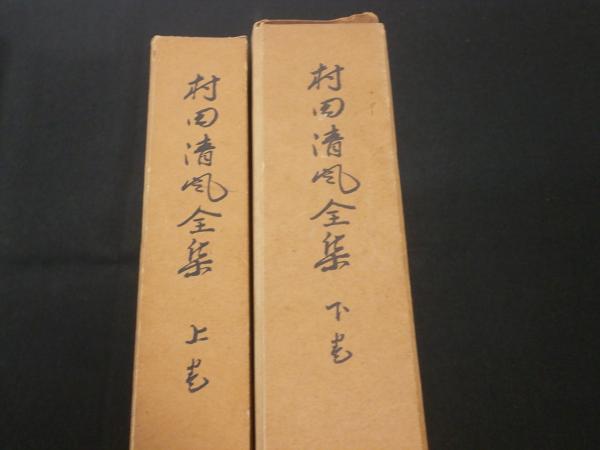 村田清风全集 上巻
村田清风全集 下巻